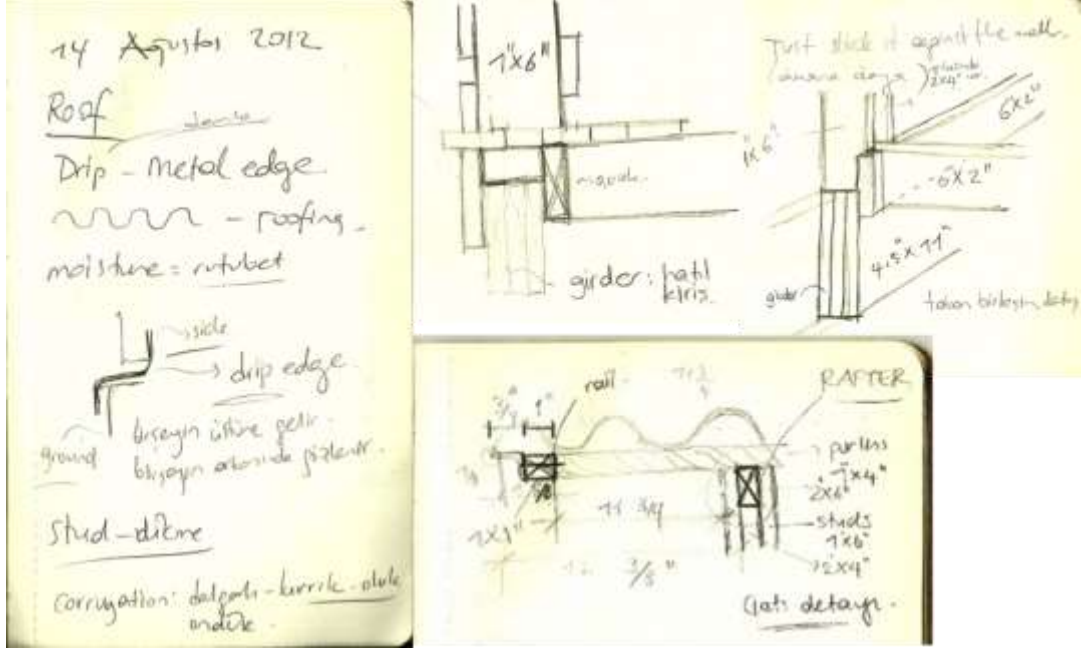 14 Ağustos 2012
Roof
Drip - Metal edge
- roofing
moisture = rutubet
side
drip edge
ground
bişeyin üstüne gelir.
bişeyin arkasında gizlenir.
Stud - dikme
corrugation: dalgalı - kıvrık - oluk
1"x6"
girder: hatıl
kiriş.
Just stick it against the wall.
2x4"
6x2"
1"x6"
6x2"
4.5"x11"
girder
1"
nail
RAFTER
purless
1"x4"
2x6"
1x1"
11 3/4
studs
1"x6"
2x4"
3/8"
Çatı detayı.